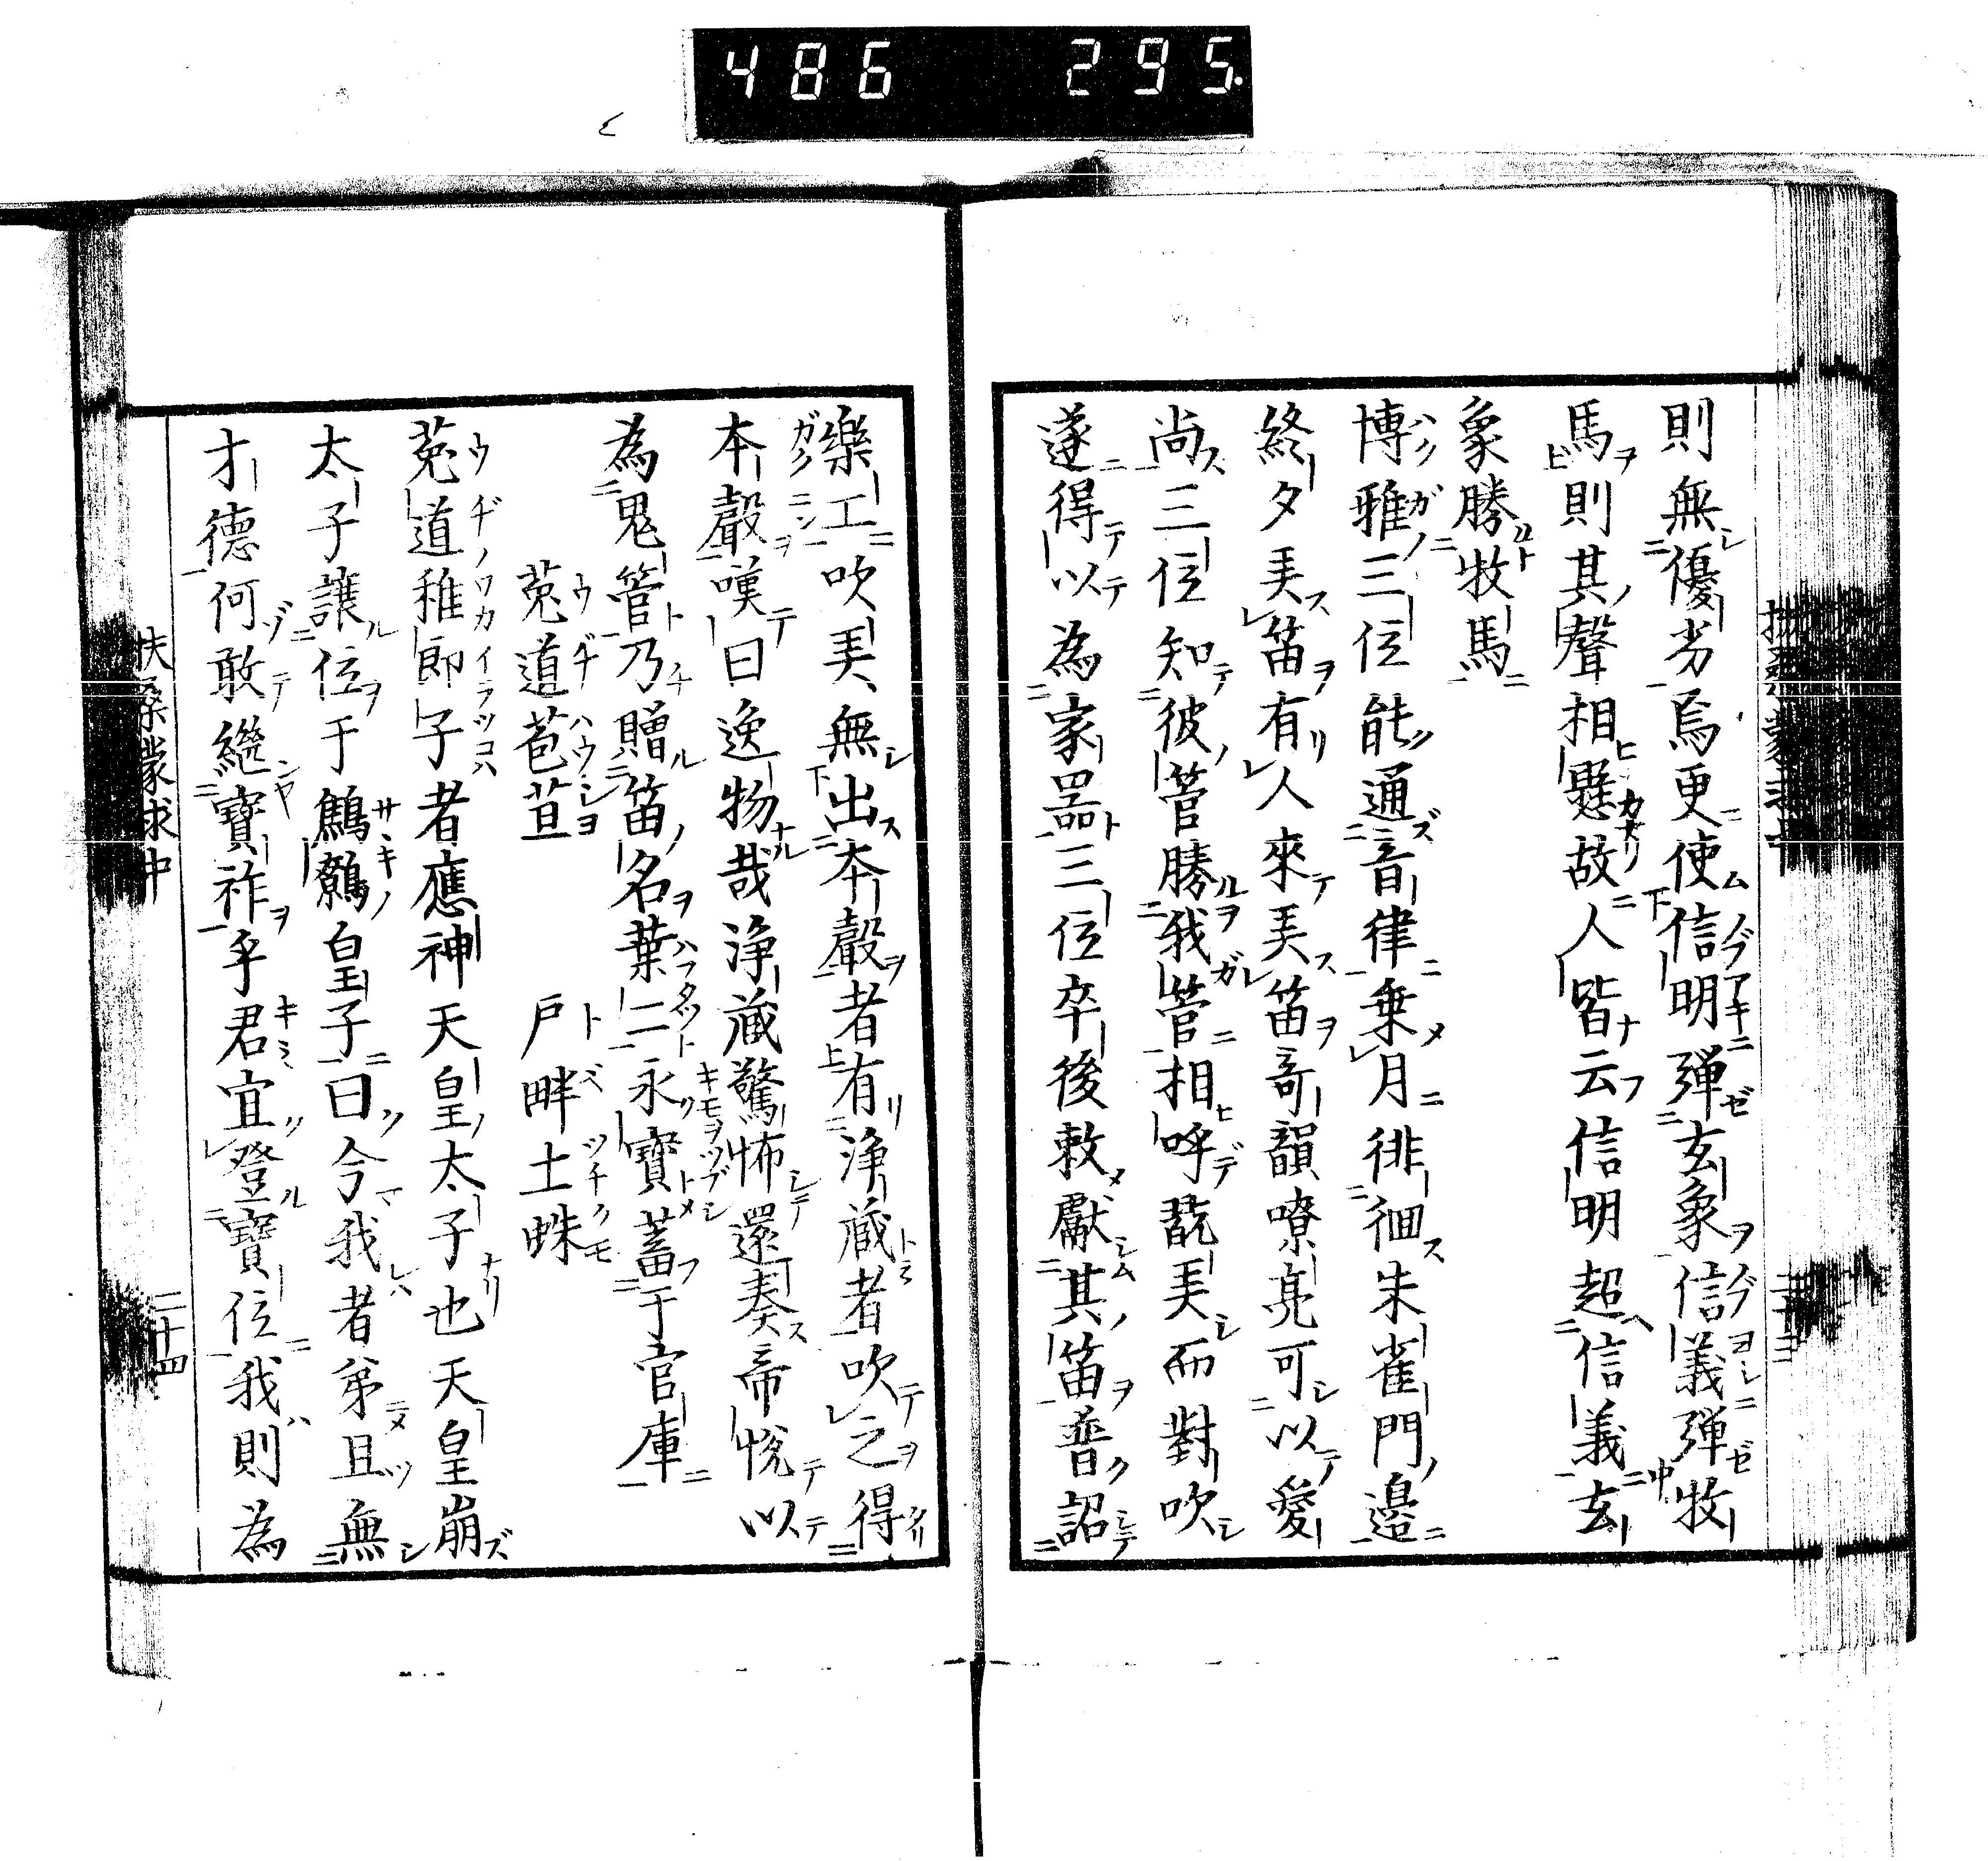 486 295.
則無優劣焉更使信明彈玄象信義彈牧
馬則其聲相懸故人皆云信明超信義玄
象勝牧馬
博雅三位能通音律乗月徘徊朱雀門邊
終夕美笛有人來美笛哥韻嘹亮可以愛
尚三位知彼管勝我管相呼翫美而對吹
遂得以為家噐三位卒後敕獻其笛普詔
樂工吹美無出本聲者有浄蔵者吹之得
本聲嘆曰逸物哉浄蔵驚怖還奏帝悦以
為鬼管乃贈笛名葉二永寶蓄于官庫
菟道苞苴 戸畔土蛛
菟道稚郎子者應神天皇太子也天皇崩
太子讓位于鷦鷯皇子曰今我者弟且無
才德何敢繼寶祚乎君宜登寶位我則為
扶桑蒙求中 二十四